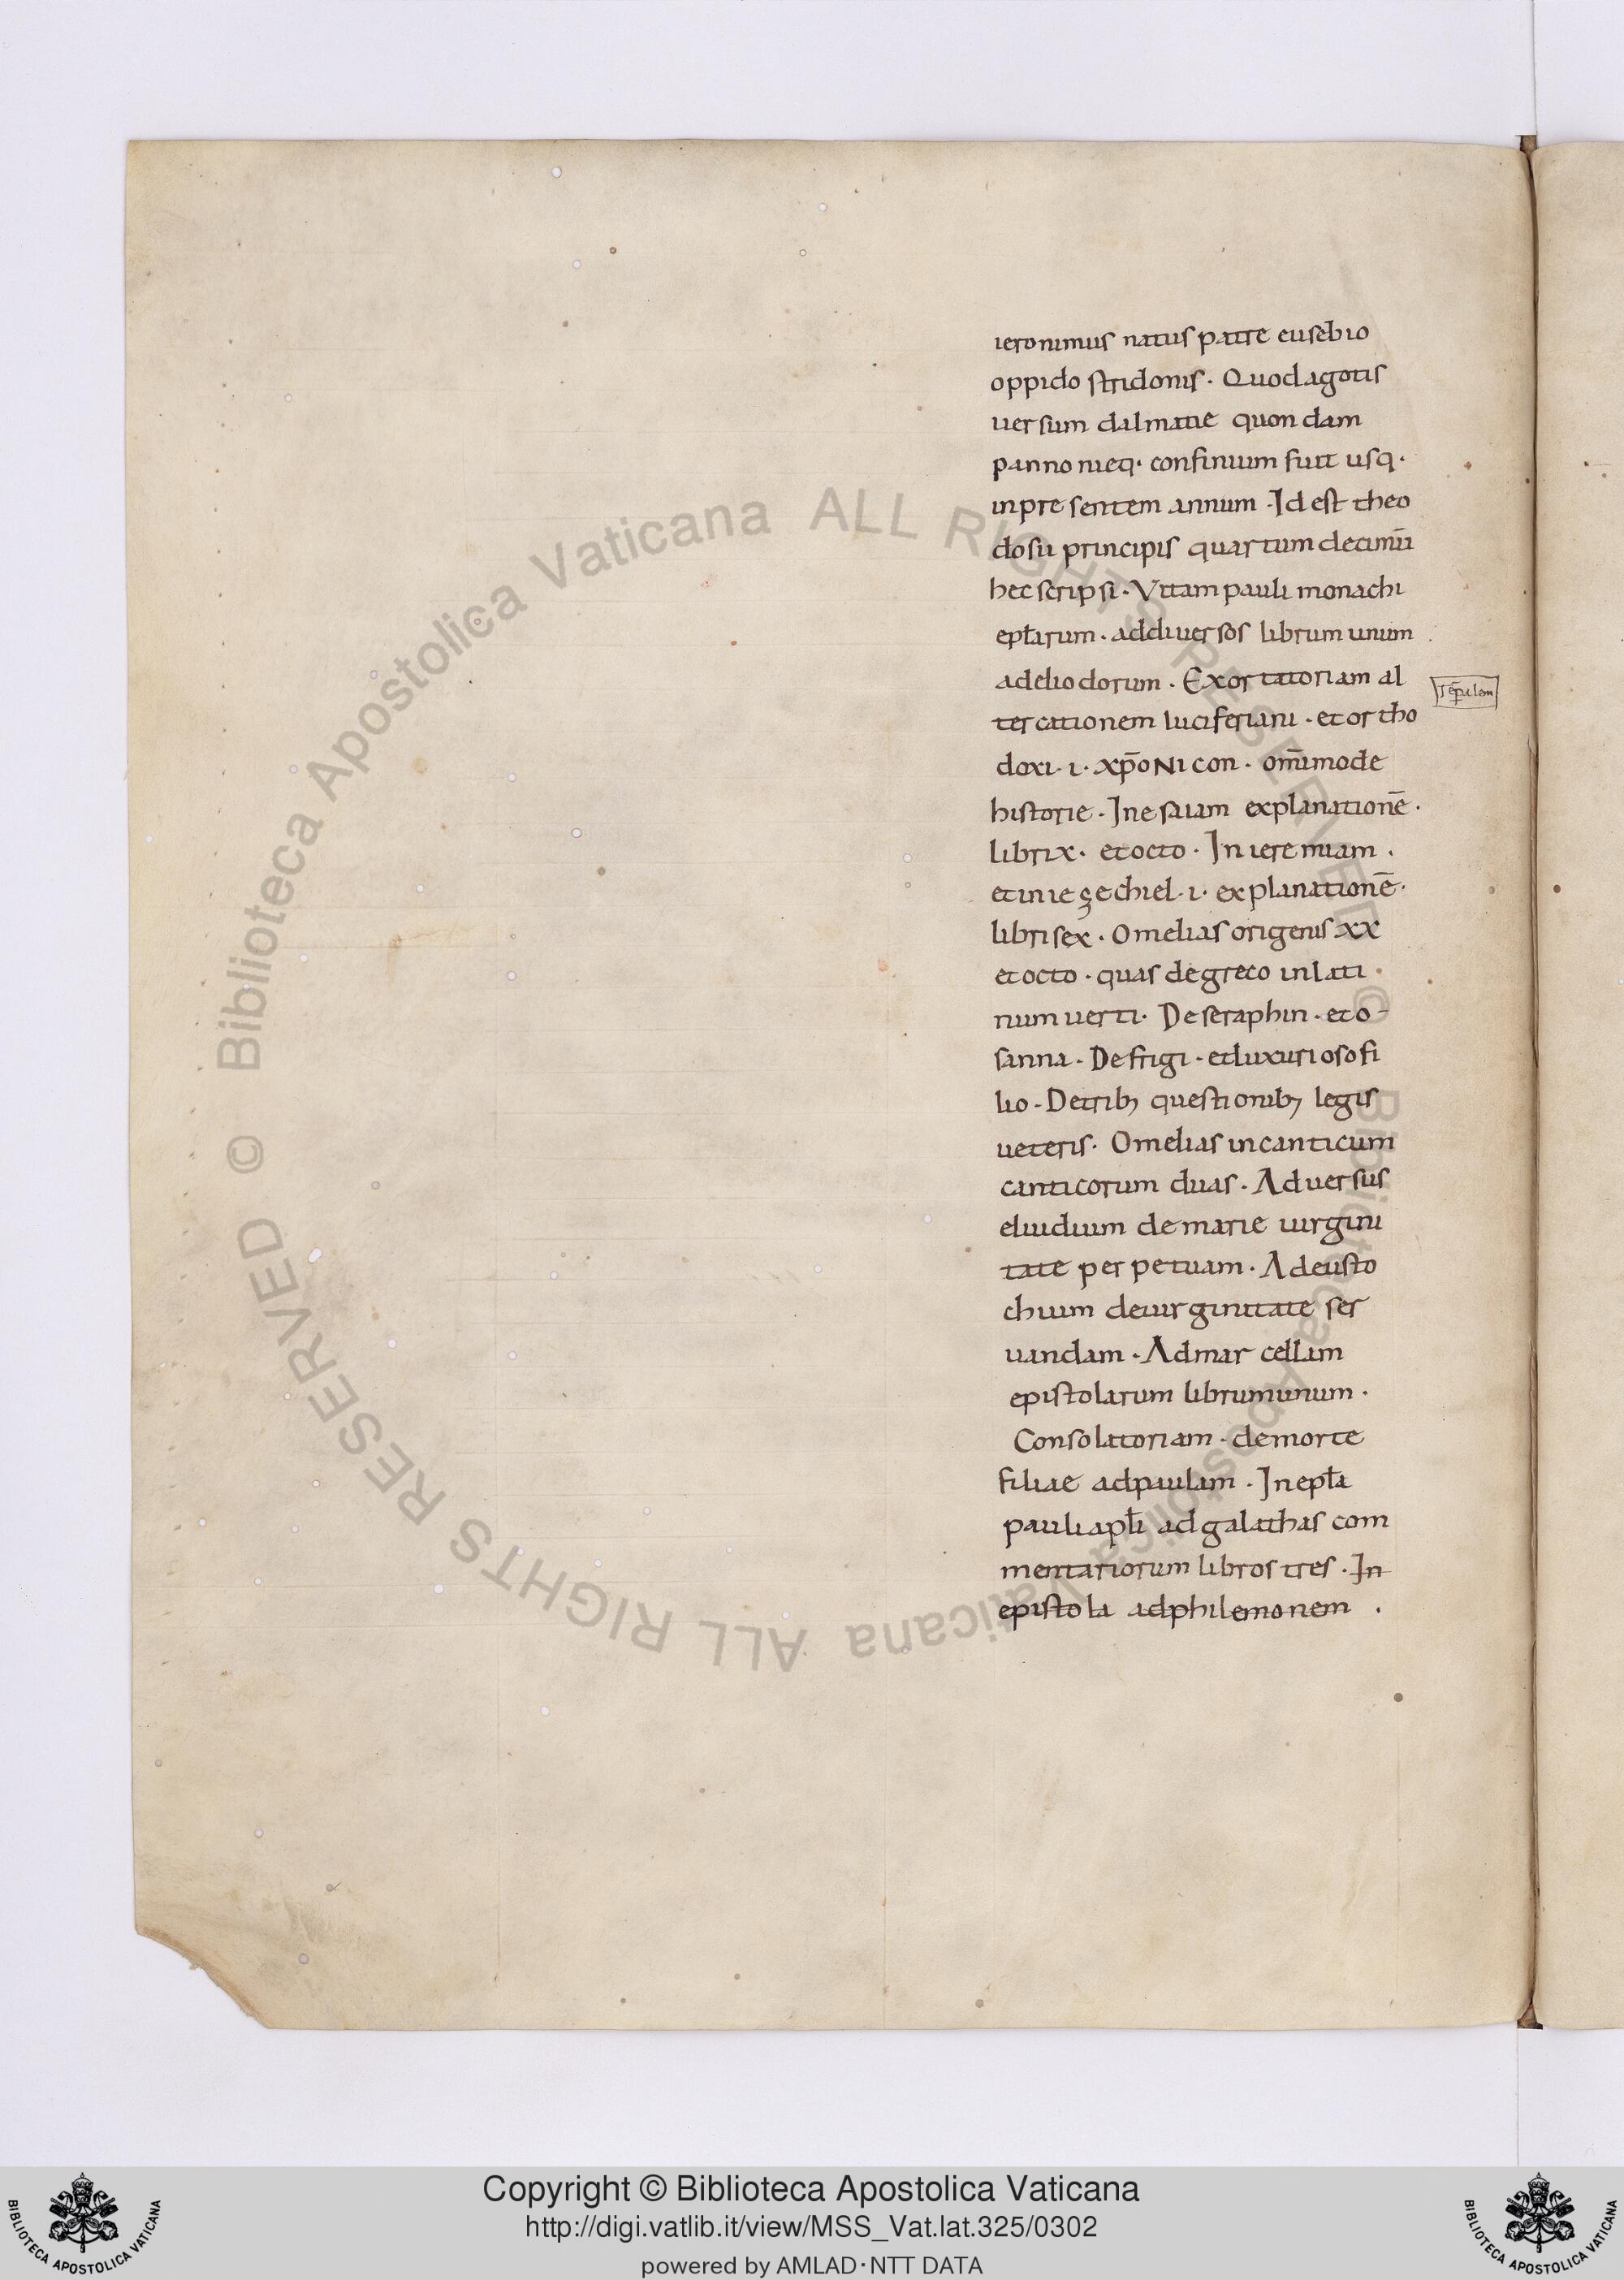 ieronimus natus patre eusebio
oppido stridonis · Quod agotis
uersum dalmatie quondam
pannonieq· confinium fuit usq·
inpresentem annum · Id est theo
dosii principis quartum decimū
hec scripsi · Vitam pauli monachi
epłarum · addiuersos librum unum
adeliodorum · Exortatoriam al
tercationem luciferiani · et ortho
doxi · i · xp̄oNicon · om̄imode
historie · In esaiam explanationē ·
libri x · et octo · In ieremiam ·
et in iezechiel · i · explanationē ·
libri sex · Omelias origenis xx
et octo · quas de greco in lati ·
num uerti · De seraphin · et o-
sanna · De frigi · et luxurioso fi
lio · De trib; questionib; legis
ueteris · Omelias in canticum
canticorum duas · Aduersus
eluidium de marie uirgini
tate perpetuam · Ad eusto
chium de uirginitate ser
uandam · Ad marcellam
epistolarum librum unum ·
Consolatoriam · de morte
filiae ad paulam · In epła
pauli apłi ad galathas com
mentariorum libros tres · In
epistola ad philemonem ·
Biblioteca Apostolica Vaticana ALL RIGHTS RESERVED ©
Biblioteca Apostolica Vaticana ALL RIGHTS RESERVED ©
Copyright © Biblioteca Apostolica Vaticana
http://digi.vatlib.it/view/MSS_Vat.lat.325/0302
powered by AMLAD·NTT DATA
BIBLIOTECA APOSTOLICA VATICANA
BIBLIOTECA APOSTOLICA VATICANA